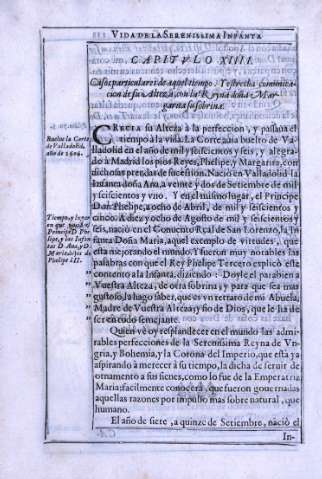 VIDA DE LA SERENISSIMA INFANTA
CAPITVLO XIIII.
Casos particulares de aquel tiempo. Y estrecha comunica-
cion de su Alteza con la Reyna doña Mar-
garita su sobrina.
Buelue la Corte
de Valladolid,
año de 1606.
CRECIA su Alteza à la perfeccion, y passaua el
tiempo à la vida. La Corte auia buelto de Va-
lladolid en el año de mil y seiscientos y seis, y alegra-
do à Madrid los pios Reyes, Phelipe, y Margarita, con
dichosas prendas de sucession. Nacio en Valladolid la
Infanta doña Ana, a veinte y dos de Setiembre de mil
y seiscientos y vno. Y en el mismo lugar, el Principe
Don Phelipe, a ocho de Abril, de mil y seiscientos y
cinco. A diez y ocho de Agosto de mil y seiscientos y
seis, nació en el Conuento Real de San Lorenzo, la In-
fanta Doña Maria, aquel exemplo de virtudes, que
está mejorando el mundo. Fueron muy notables las
palabras con que el Rey Phelipe Tercero explicó este
contento a la Infanta, diziendo: Doyle el parabien a
Vuestra Alteza, de otra sobrina, y para que sea mas
gustoso, la hago saber, que es vn retrato de mi Abuela,
Madre de Vuestra Alteza; y fio de Dios, que le ha de
ser en todo semejante.
Tiempo, y lugar
en que nació el
Principe D. Phe-
lipe, y las Infan-
tas D. Ana, y D.
Maria hijos de
Phelipe III.
Quien vè oy resplandecer en el mundo las admi-
rables perfecciones de la Serenissima Reyna de Vn-
gria, y Bohemia, y la Corona del Imperio, que està ya
aspirando à merecer à su tiempo, la dicha de seruir de
ornamento a sus sienes, como lo fue de la Emperatriz
Maria; facilmente conocerá, que fueron gouernadas
aquellas razones por impulso mas sobre natural, que
humano.
El año de siete, a quinze de Setiembre, nació el
In-